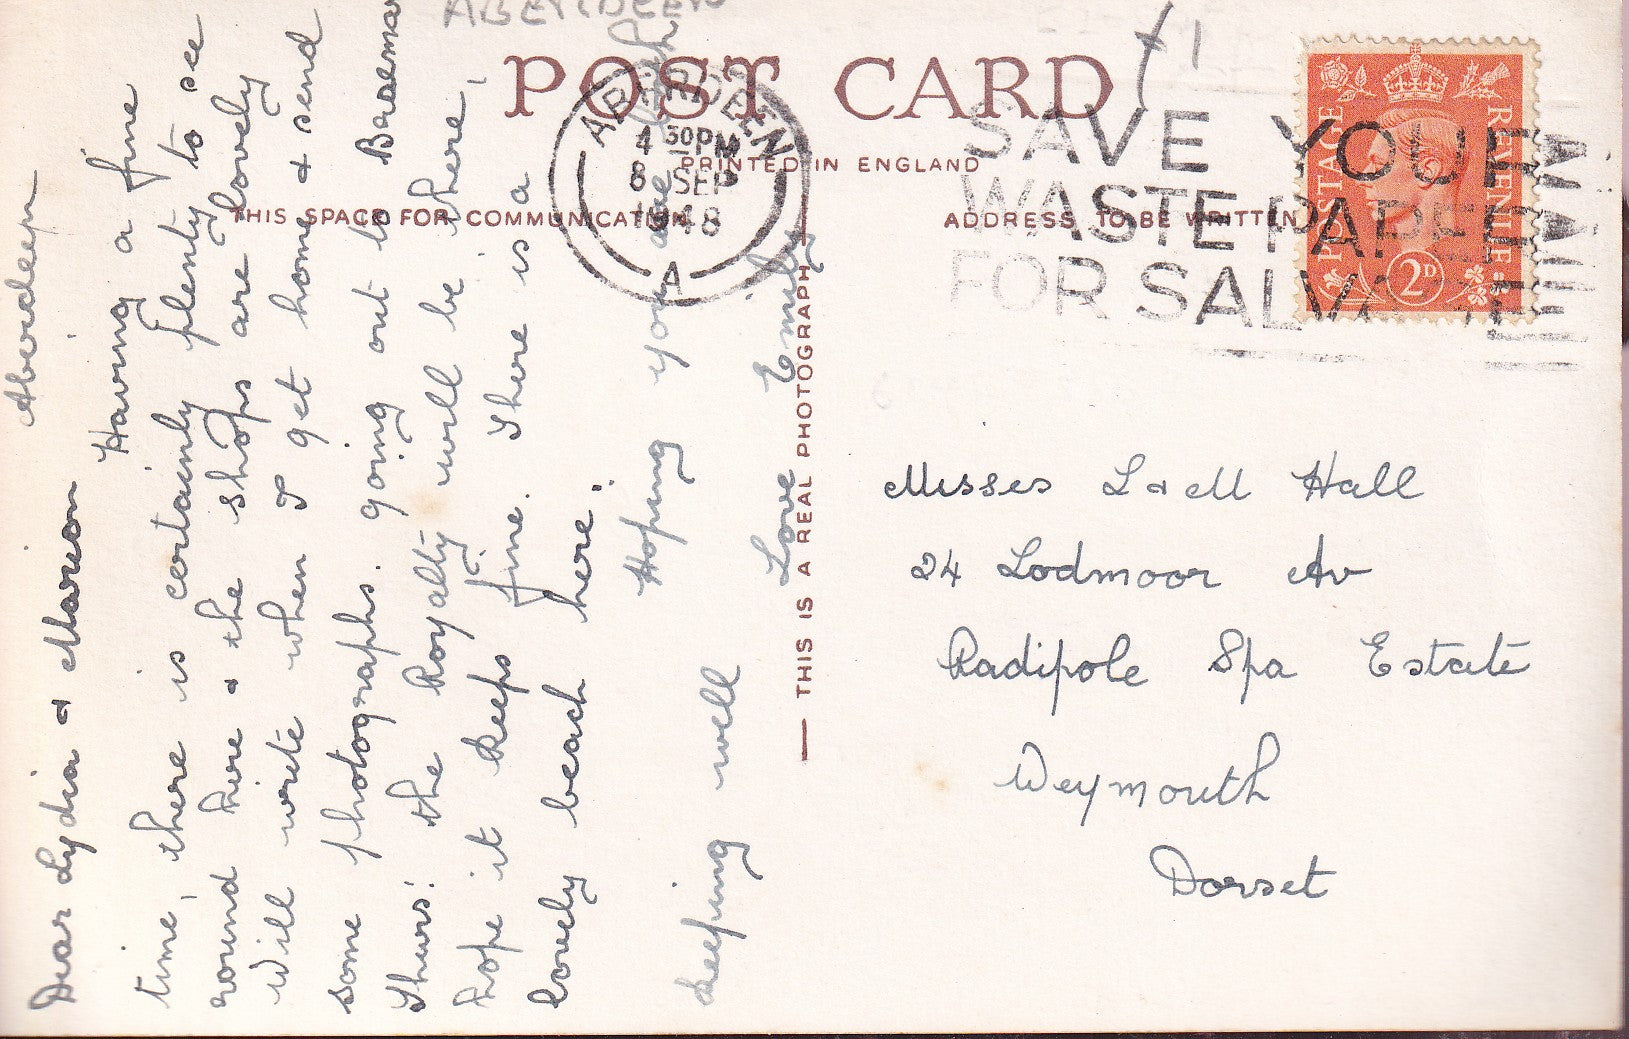 ABERDEEN
£1
POST CARD
PRINTED IN ENGLAND
THIS SPACE FOR COMMUNICATION
ADDRESS TO BE WRITTEN
THIS IS A REAL PHOTOGRAPH
ABERDEEN
4 30 PM
8 SEP
1948
A
SAVE YOUR
WASTE PAPER
FOR SALVAGE
POSTAGE
REVENUE
2D
Aberdeen
Dear Lydia & Marion
Having a fine
time, there is certainly plenty to see
round here & the shops are lovely
Will write when I get home & send
some photographs. going out to Braemar
Thurs: the Royalty will be there,
hope it keeps fine. There is a
lovely beach here.
Hoping you are both
keeping well
Love Emily
Misses L & M Hall
24 Lodmoor Av
Radipole Spa Estate
Weymouth
Dorset